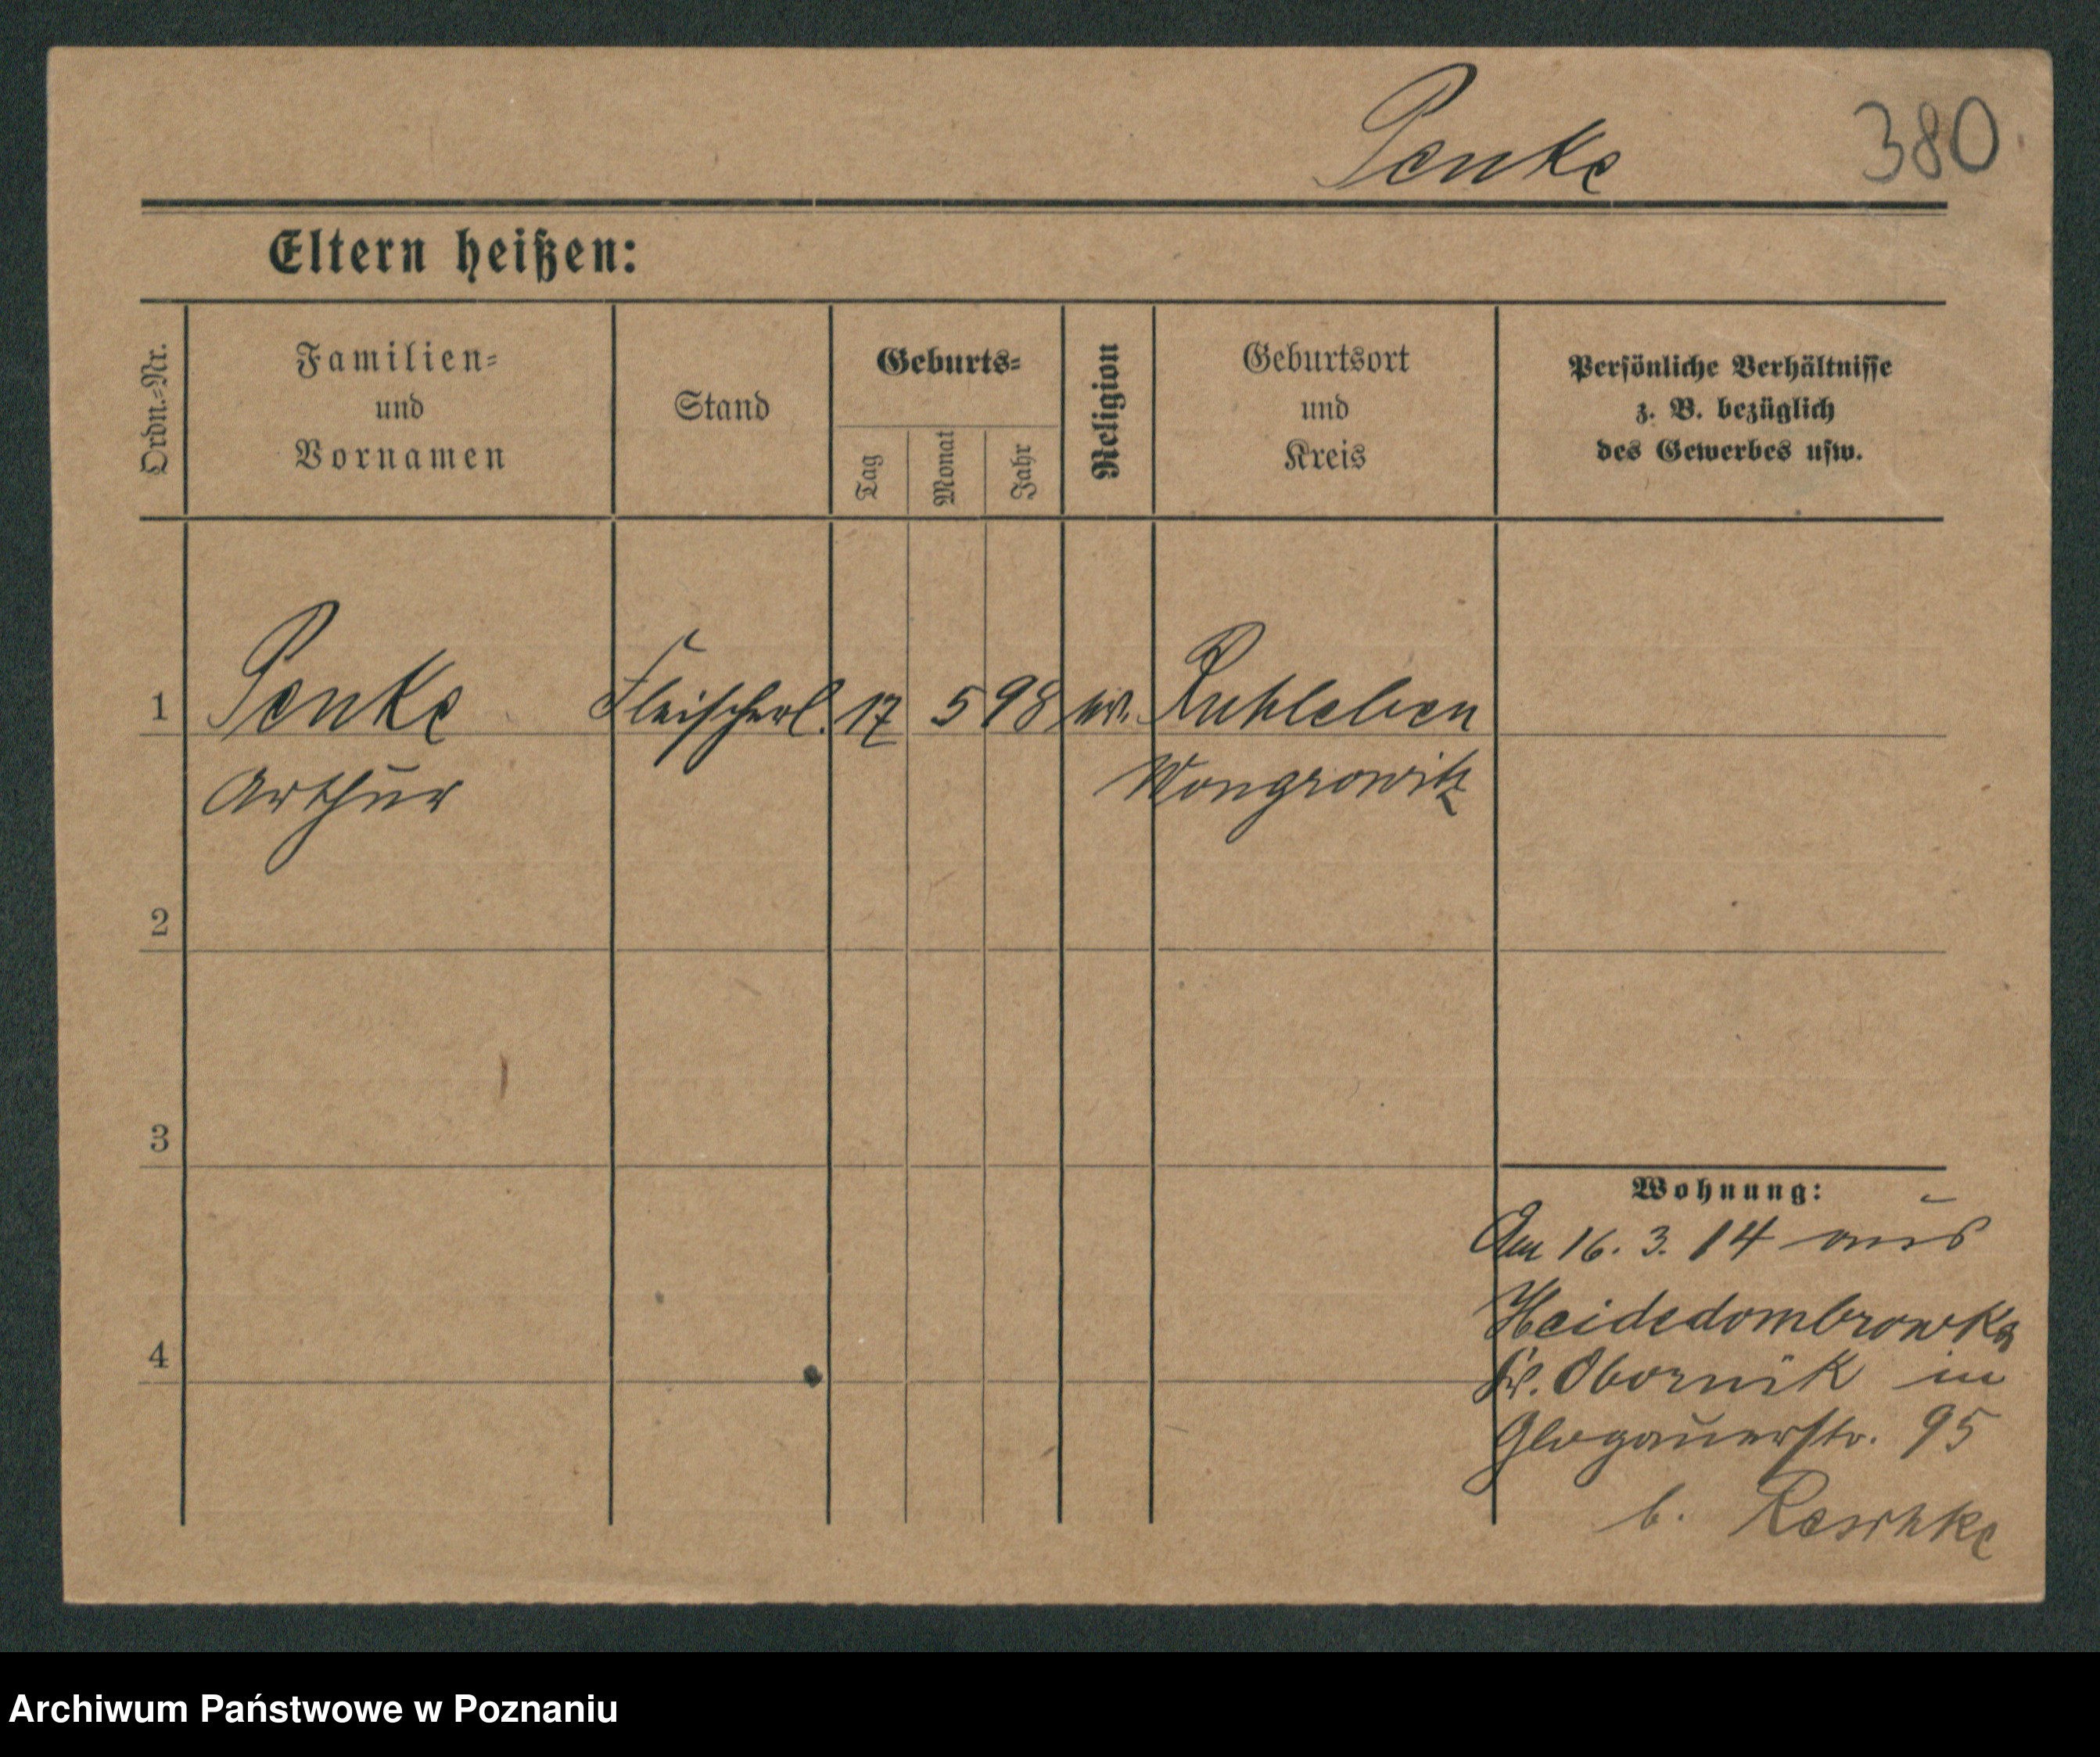 Penke 380
Eltern heißen:
Ordn.-Nr.
Familien-
und
Vornamen
Stand
Geburts-
Tag
Monat
Jahr
Religion
Geburtsort
und
Kreis
Persönliche Verhältnisse
z. B. bezüglich
des Gewerbes usw.
1 Penke Fleischerl. 17 5 98 ev. Ruhleben
Arthur Wongrowitz
2
3
4
Wohnung:
Am 16. 3. 14 aus
Heidedombrowka
Kr. Obornik in
Glogauerstr. 95
b. Reschke
Archiwum Państwowe w Poznaniu